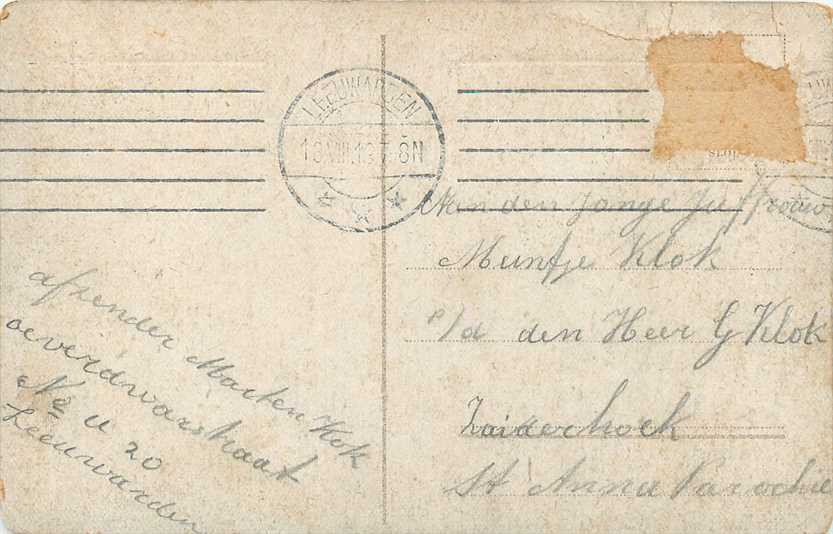 LEEUWARDEN
8N
Aan den Jonge Juffrouw
Muntje Klok
p/a den Heer G Klok
Zuiderhoek
St Anna Parochie
afzender Marten Kok
oeverdwarsstraat
No 20
Leeuwarden